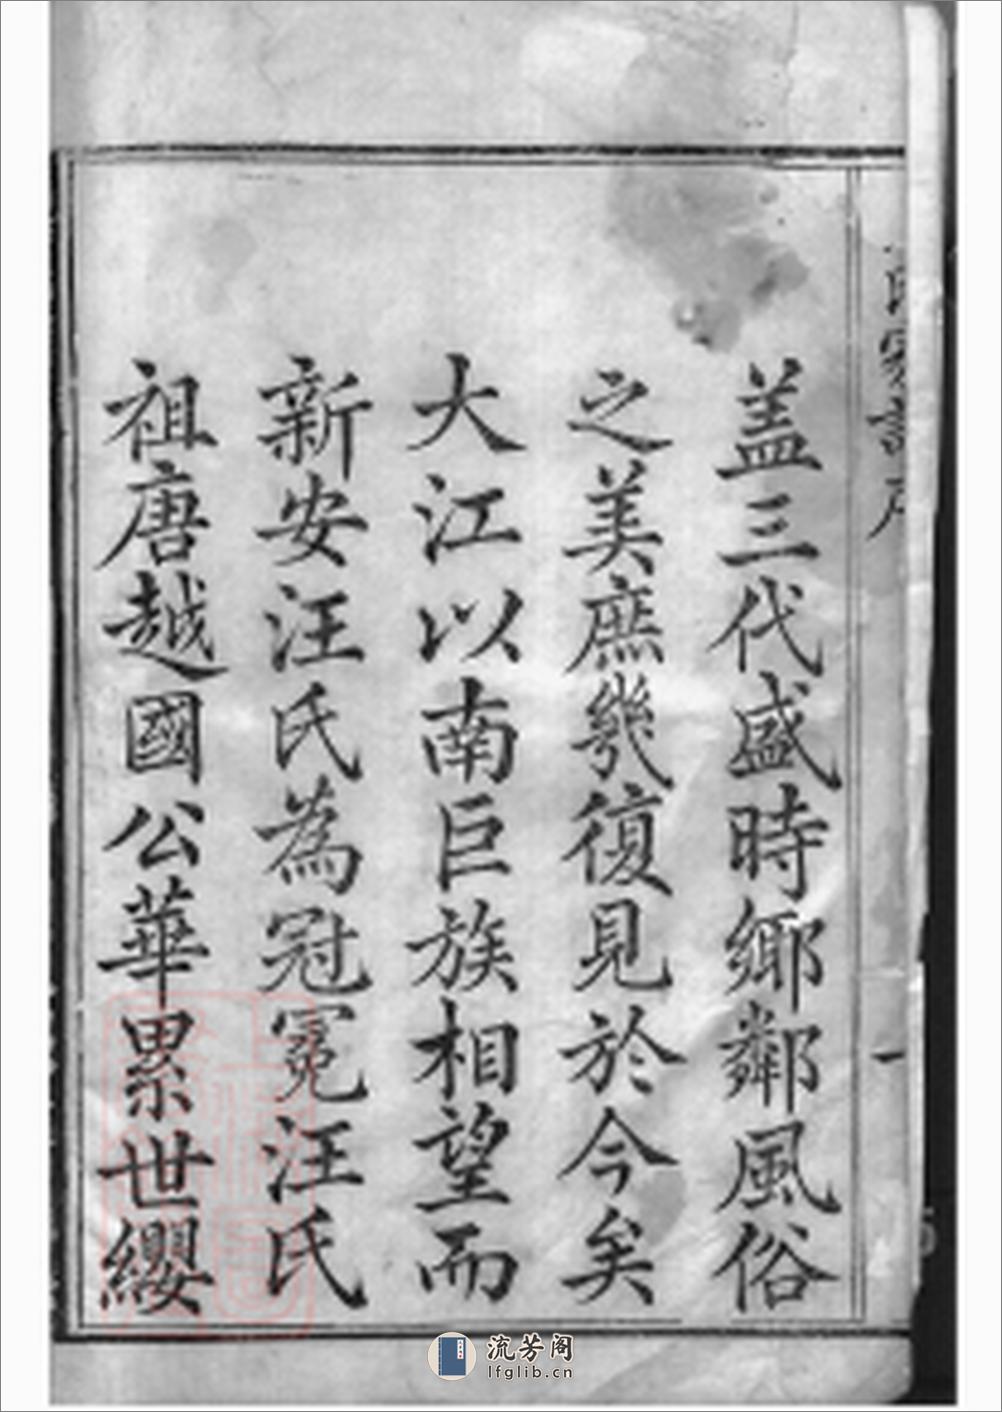 盖三代盛時鄉鄰風俗
之美庶幾復見於今矣
大江以南巨族相望而
新安汪氏為冠冕汪氏
祖唐越國公華累世纓
一
流芳阁
lfglib.cn